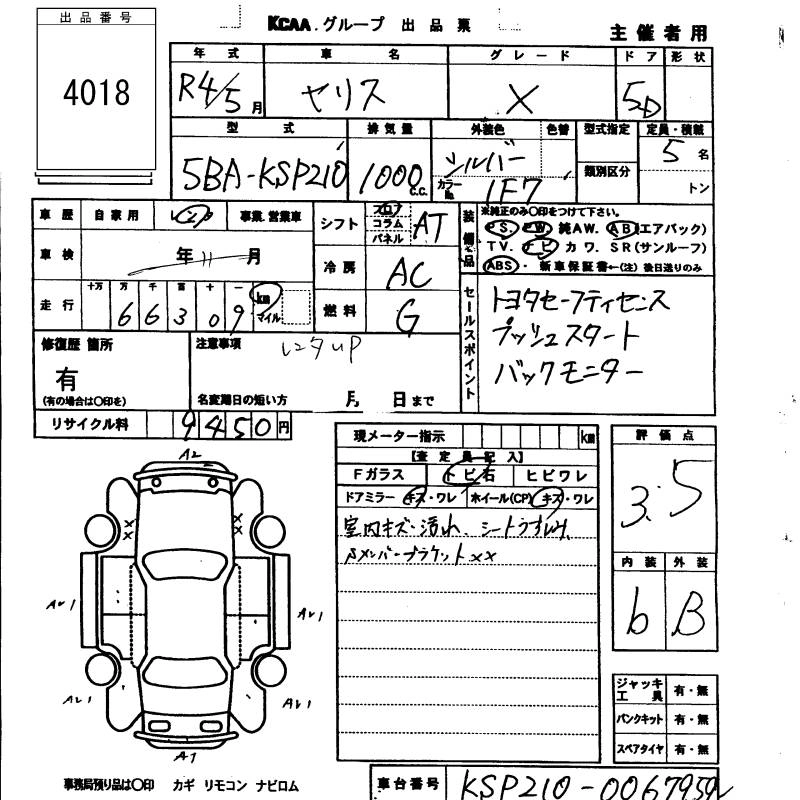 出品番号
4018
KCAA.グループ 出品票
主催者用
年式 車名 グレード ドア 形状
R4/5月 ヤリス X 5D
型式 排気量 外装色 色替 型式指定 定員・積載
5BA-KSP210 1000c.c. シルバー 類別区分 5名
カラーNo. 1F7 トン
車歴 自家用 レンタ 事業.営業車
シフト フロア コラム パネル AT
装備品
※純正のみ〇印をつけて下さい。
PS. PW. 純AW. AB(エアバック)
TV. ナビ カワ. SR(サンルーフ)
ABS・ 新車保証書←(注)後日送りのみ
車検 年11月
冷房 AC
走行 十万 万 千 百 十 一
66309 km マイル
燃料 G
セールスポイント
トヨタセーフティセンス
プッシュスタート
バックモニター
修復歴 箇所
有
(有の場合は〇印を)
注意事項
レンタup
名変期日の短い方 月 日まで
リサイクル料 9450円
現メーター指示 km
【査定員記入】
Fガラス トビ石 ヒビワレ
ドアミラー キズ・ワレ ホイール(CP) キズ・ワレ
室内キズ・汚れ、シートうすしみ、
βメンバーブラケット××
評価点
3.5
内装 外装
b B
A2
×
×
×
×
AU1
AU1
AU1
AU1
A1
ジャッキ工具 有・無
パンクキット 有・無
スペアタイヤ 有・無
事務局預り品は〇印 カギ リモコン ナビロム
車台番号 KSP210-0067959